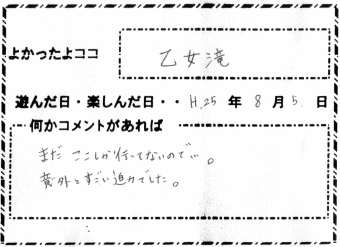 よかったよココ 乙女滝
遊んだ日・楽しんだ日・・ H.25 年 8 月 5. 日
何かコメントがあれば
まだ ここしか行ってないので…。
意外とすごい迫力でした。